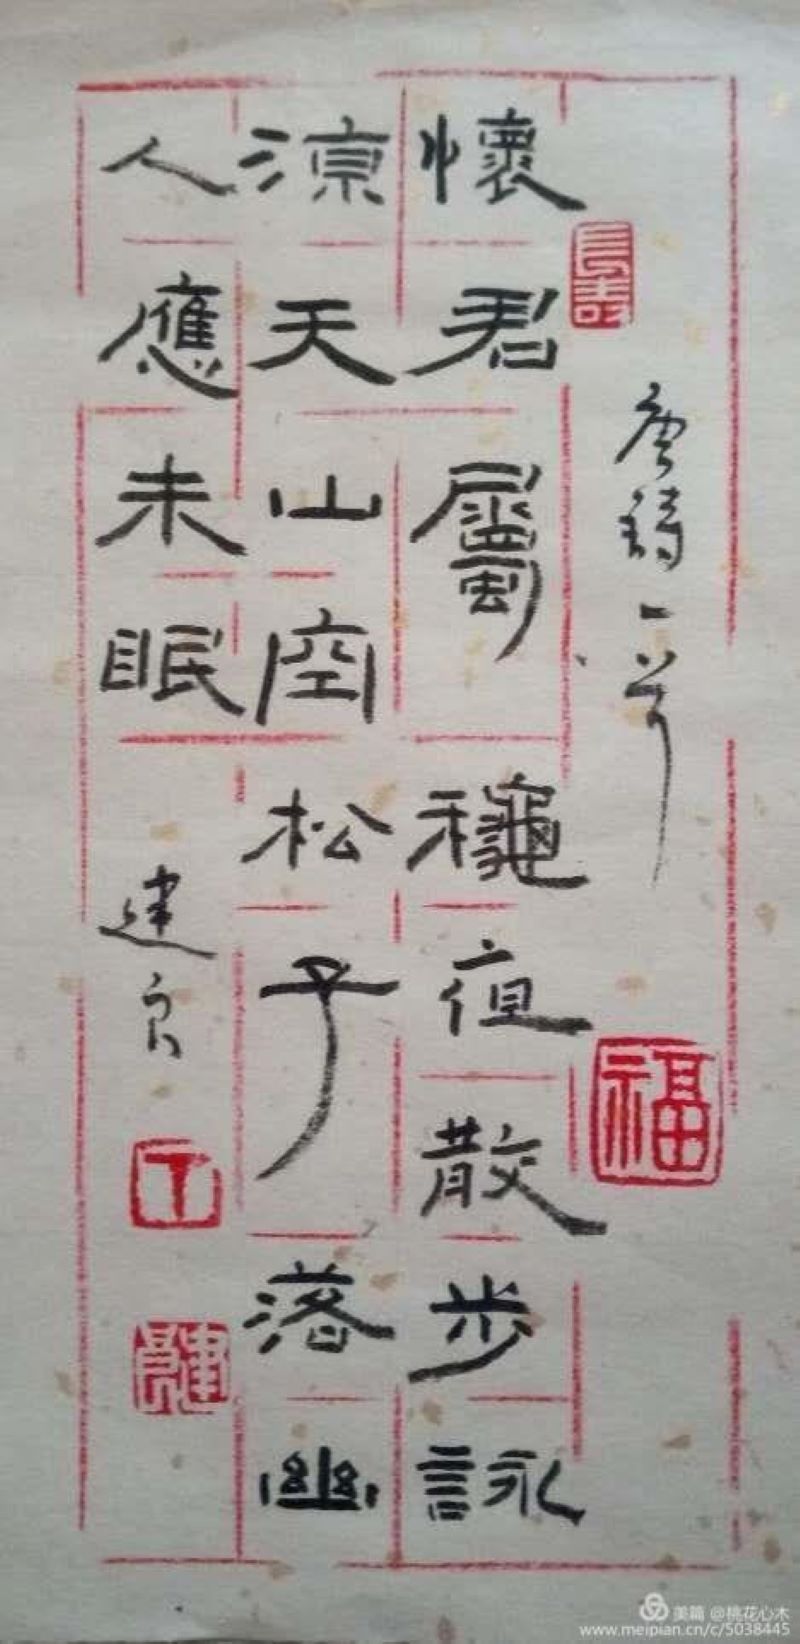 長壽
唐詩一首
福
懷君屬龝夜散步詠
涼天山空松子落幽
人應未眠
建良
丁
建良
美篇 @桃花心木
www.meipian.cn/c/5038445